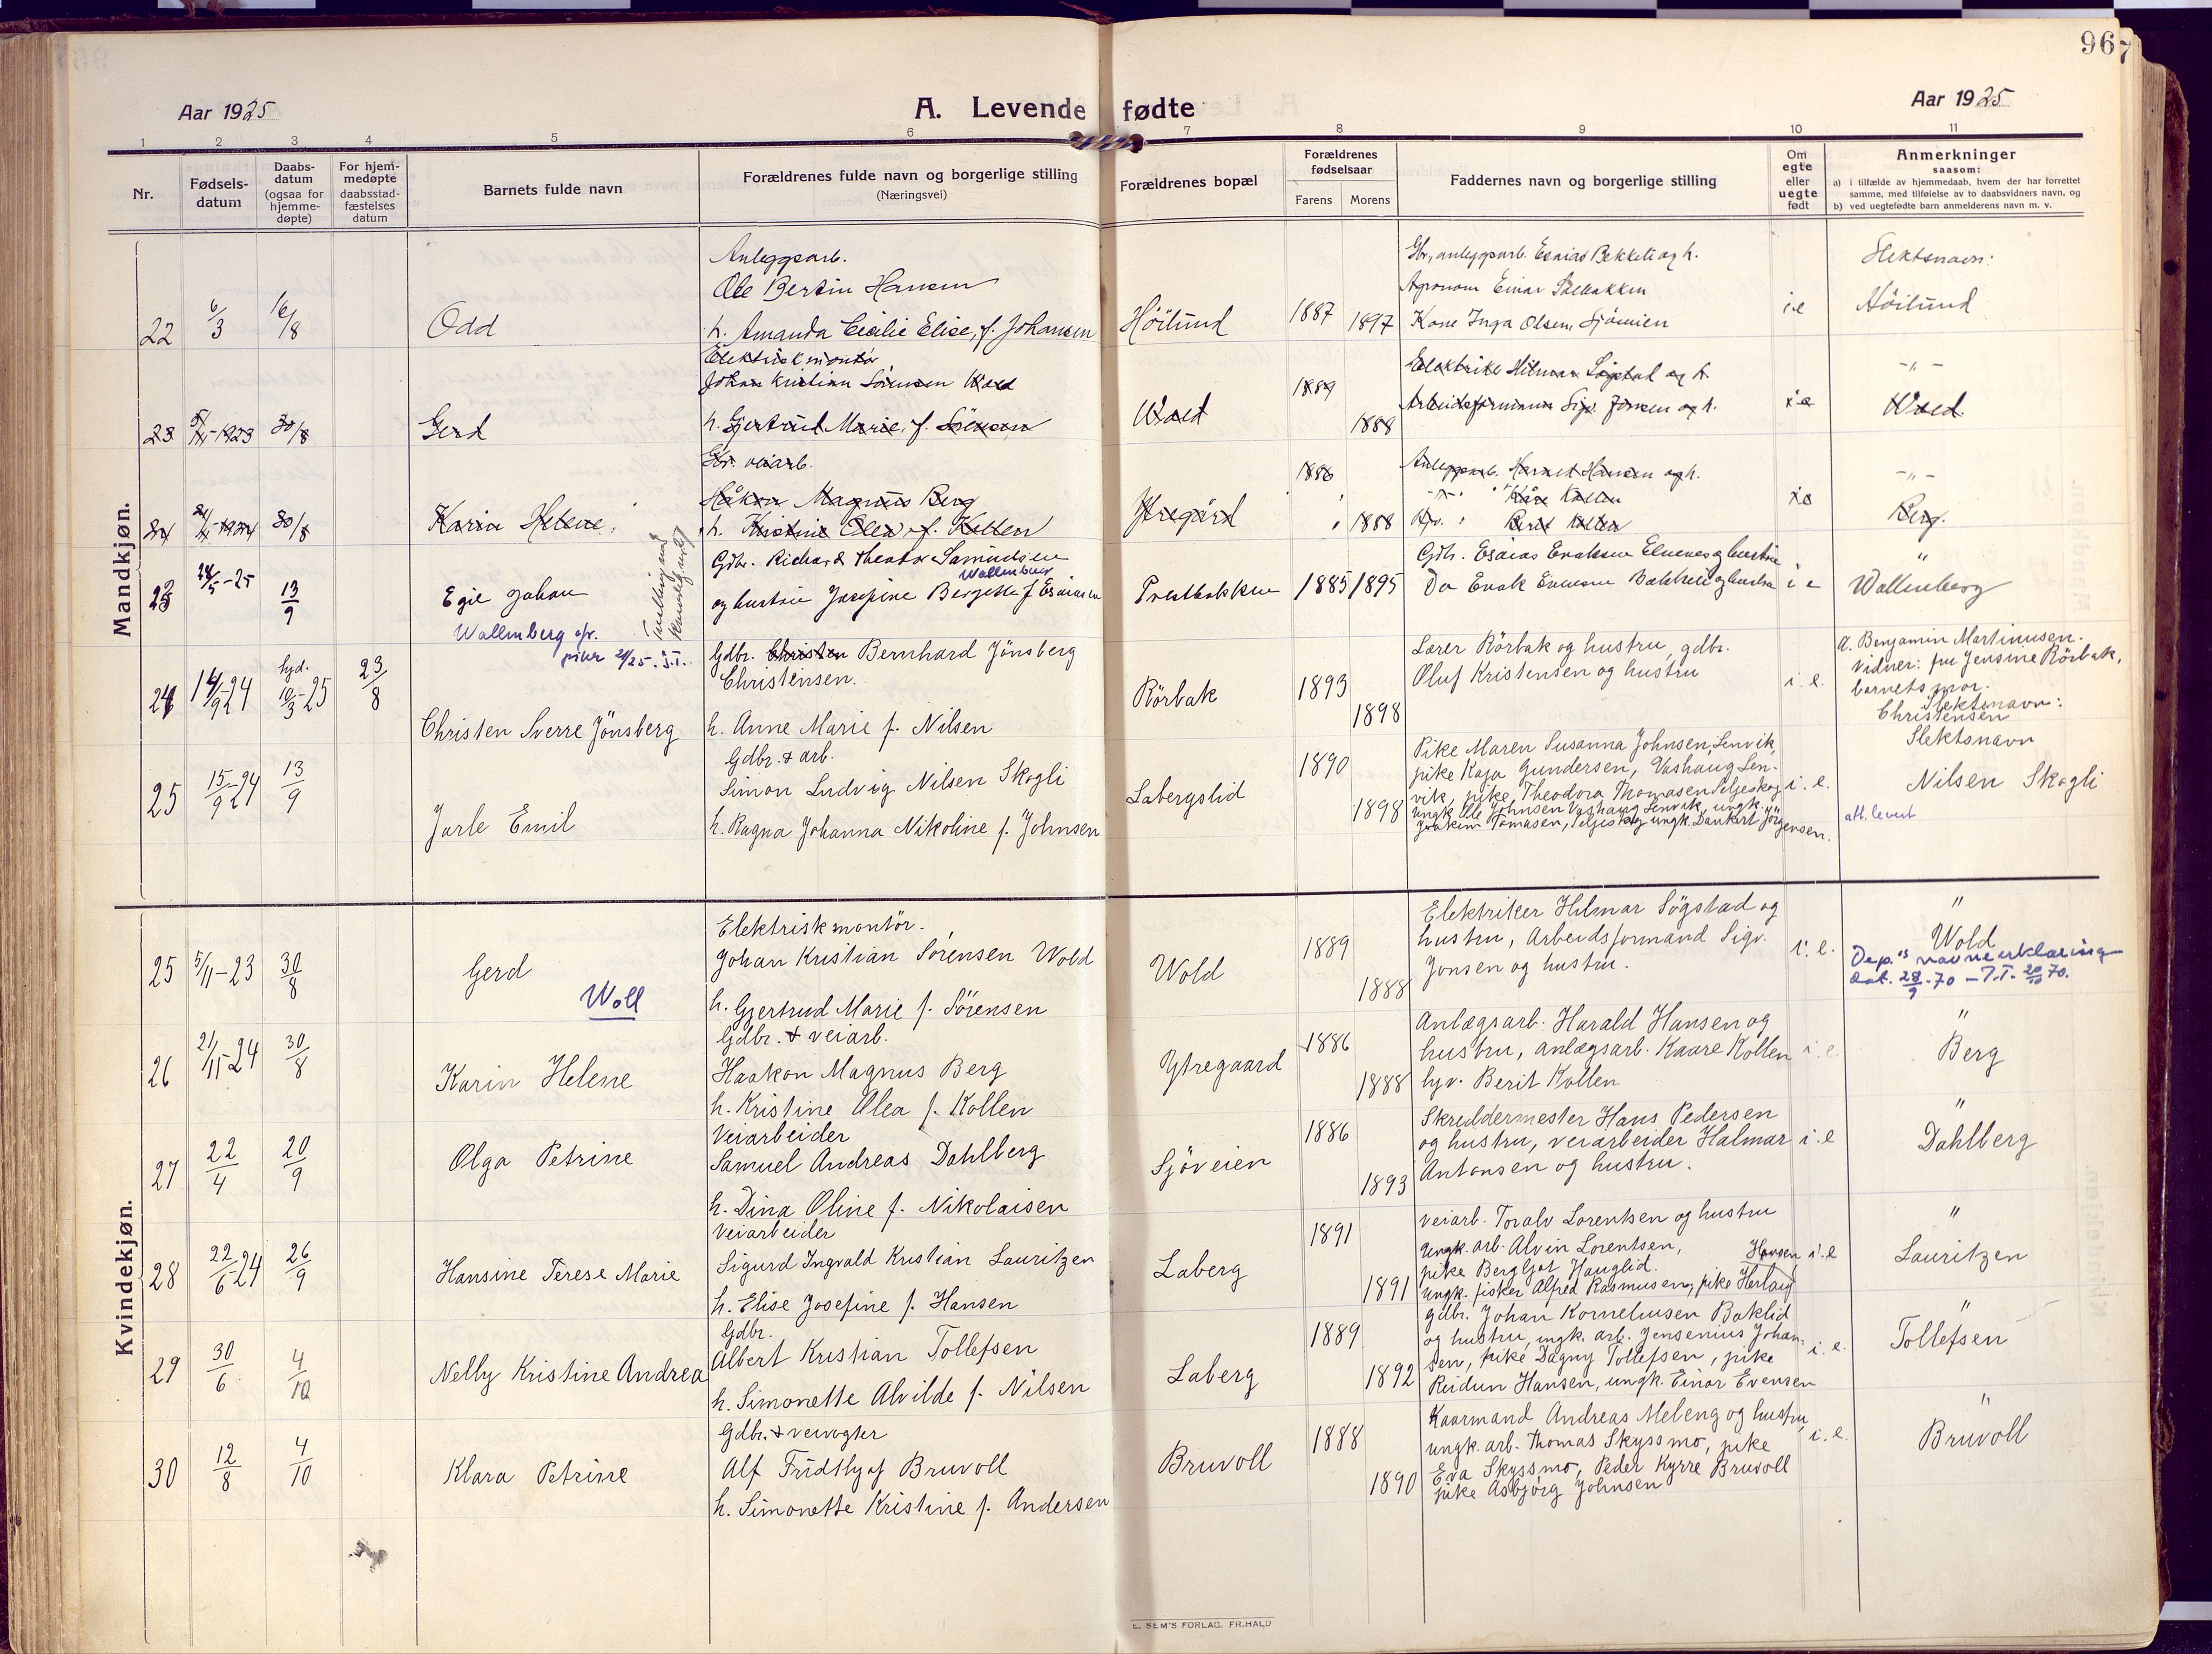 96
7
Aar 1925
A. Levende fødte
Aar 1925
1 2 3 4 5 6 7 8 9 10 11
Nr.
Fødsels-
datum
Daabs-
datum
(ogsaa for
hjemme-
døpte)
For hjem-
medøpte
daabsstad-
fæstelses
datum
Barnets fulde navn
Forældrenes fulde navn og borgerlige stilling
(Næringsvei)
Forældrenes bopæl
Forældrenes
fødselsaar
Farens Morens
Faddernes navn og borgerlige stilling
Om
egte
eller
uegte
født
Anmerkninger
saasom:
a) i tilfælde av hjemmedaab, hvem der har forrettet
samme, med tilføielse av to daabsvidners navn, og
b) ved uegtefødte barn anmelderens navn m. v.
Mandkjøn.
22 6/3 16/8 Odd
Anleggsarb.
Ole Bertin Hansen
h. Amanda Cecilie Elise, f. Johansen
Höilund 1887 1897
Gbr, anleggsarb. Esaias Bekkeli og h.
Agronom Einar Solbakken
Kone Inga Olsen, Sjöveien
i.e
Slektsnavn:
Höilund
23 5/11-1923 30/8 Gerd
Elektriskmontör
Johan Kristian Sörensen Wold
h. Gjertrud Marie, f. Sörensen
Wold 1889 1888
Elektriker Hilmar Sögstad og h.
Arbeidsformann Sigv. Jonsen og h.
i.e
-"-
Wold.
24 21/11-1924 30/8 Karin Helene
Gbr. veiarb.
Håkon Magnus Berg
h. Kristine Olea f. Kollen
Ytregård 1886 1888
Anleggsarb. Harald Hansen og h.
-"- Kåre Kollen
Hyv. Berit Kollen
i.e
-"-
Berg.
23 24/5-25 13/9 Egil Johan
Wallenberg
Gdbr. Richard Theodor Samuelsen
Wallenberg
og hustru Josefine Bergette f Esaiassen
Prestbakken 1885 1895
Gdbr. Esaias Enoksen Elvenes og hustru
Do Enok Enoksen Bakkeli og hustru
i e
"
Wallenberg
24 14/9-24 hjd. 10/3-25 23/8
Christen Sverre Jönsberg
Gdbr. Christen Bernhard Jönsberg
Christensen.
h. Anne Marie f. Nilsen
Rörbak 1893 1898
Lærer Rörbak og hustru, gdbr.
Oluf Kristensen og hustru
i. e.
a. Benjamin Martinusen.
Vidner: fru Jensine Rörbak,
barnets mor.
Slektsnavn:
Christensen
25 15/9-24 13/9 Jarle Emil
Gdbr. & arb.
Simon Ludvig Nilsen Skogli
h. Ragna Johanna Nikoline f. Johnsen
Labergslid 1890 1898
Pike Maren Susanna Johnsen, Lenvik,
pike Kaja Gundersen, Vashaug Len-
vik, pike, Theodora Thomasen Seljeskog
ungk. Ole Johnsen Vashaug Lenvik, ungk.
Joakim Tomasen, Seljeskog ungk. Dankert Jörgensen.
i. e.
Slektsnavn
Nilsen Skogli
att. levert
Kvindekjøn.
25 5/11-23 30/8 Gerd
Woll
Elektriskmontör.
Johan Kristian Sörensen Wold
h. Gjertrud Marie f. Sörensen
Wold 1889 1888
Elektriker Hilmar Sögstad og
hustru, Arbeidsformand Sigv.
Jonsen og hustru.
i. e.
"
Wold
Dep.'s navneerklæring
dat. 28/9-70 - T.I. 20/10 70.
26 21/11-24 30/8 Karin Helene
Gdbr. & veiarb.
Haakon Magnus Berg
h. Kristine Olea f. Kollen
Ytregaard 1886 1888
Anlægsarb. Harald Hansen og
hustru, anlægsarb. Kaare Kollen
hyv. Berit Kollen
i. e.
"
Berg
27 22/4 20/9 Olga Petrine
Veiarbeider
Samuel Andreas Dahlberg
h. Dina Oline f. Nikolaisen
Sjöveien 1886 1893
Skreddermester Hans Pedersen
og hustru, veiarbeider Halmar
Antonsen og hustru.
i. e
"
Dahlberg
28 22/6 24 26/9 Hansine Terese Marie
Veiarbeider
Sigurd Ingvald Kristian Lauritzen
h. Elise Josefine f. Hansen
Laberg 1891 1891
Veiarb. Toralv Lorentsen og hustru
Ungk. arb. Alvin Lorentsen,
pike Bergljot Hauglid.
Hansen
ungk. fisker Alfred Rasmusen, pike Herlaug
i. e
"
Lauritzen
29 30/6 4/10 Nelly Kristine Andrea
Gdbr.
Albert Kristian Tollefsen
h. Simonette Alvilde f. Nilsen
Laberg 1889 1892
gdbr. Johan Korneliusen Baklid
og hustru, ungk. arb. Jensenius Johan-
sen, pike Dagny Tollefsen, pike
Reidun Hansen, ungk. Einar Evensen
i. e.
"
Tollefsen
30 12/8 4/10 Klara Petrine
Gdbr. & veivogter
Alf Fridthjof Bruvoll
h. Simonette Kristine f. Andersen
Bruvoll 1888 1890
Kaarmand Andreas Meleng og hustru,
ungk. arb. Thomas Skyssmo, pike
Eva Skyssmo, Peder Kyrre Bruvoll
pike Asbjörg Johnsen
i. e.
"
Bruvoll
E. SEM'S FORLAG. FR.HALD